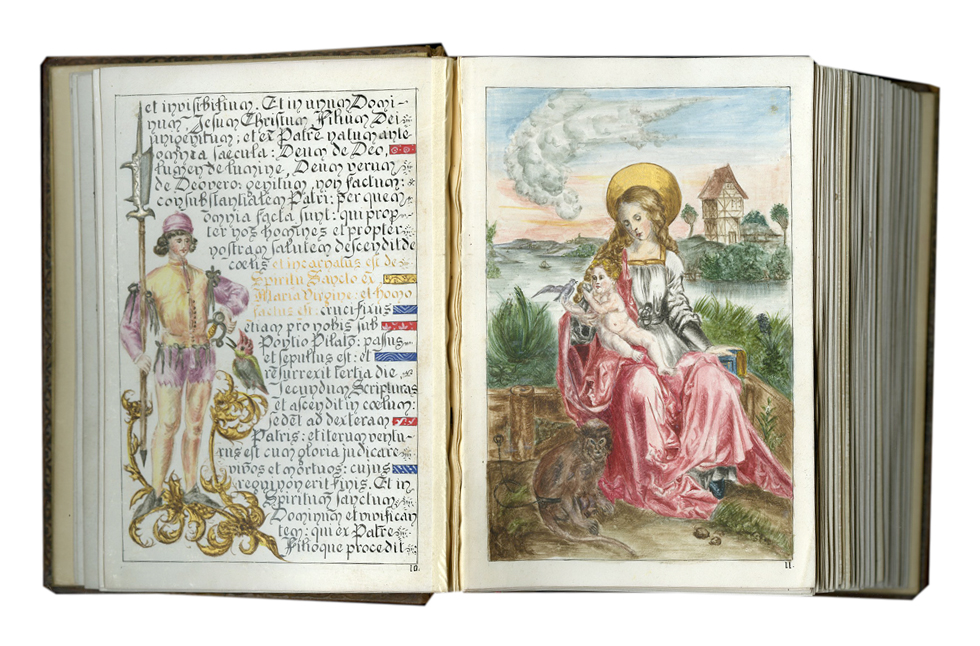 et invisibilium. Et in unum Domi-
num Jesum Christum Filium Dei
unigenitum, et ex Patre natum ante
omnia saecula: Deum de Deo,
lumen de lumine, Deum verum
de Deo vero: genitum, non factum:
consubstantialem Patri: per quem
omnia facta sunt: qui prop-
ter nos homines et propter
nostram salutem descendit de
coelis et incarnatus est de
Spiritu Sancto ex
Maria Virgine: et homo
factus est. crucifixus
etiam pro nobis sub
Pontio Pilato: passus
et sepultus est: et
resurrexit tertia die
secundum Scripturas
et ascendit in coelum:
sedet ad dexteram
Patris: et iterum ventu-
rus est cum gloria judicare
vivos et mortuos: cujus
regni non erit finis. Et in
Spiritum sanctum
Dominum et vivifican
tem: qui ex Patre
Filioque procedit:
10.
11.